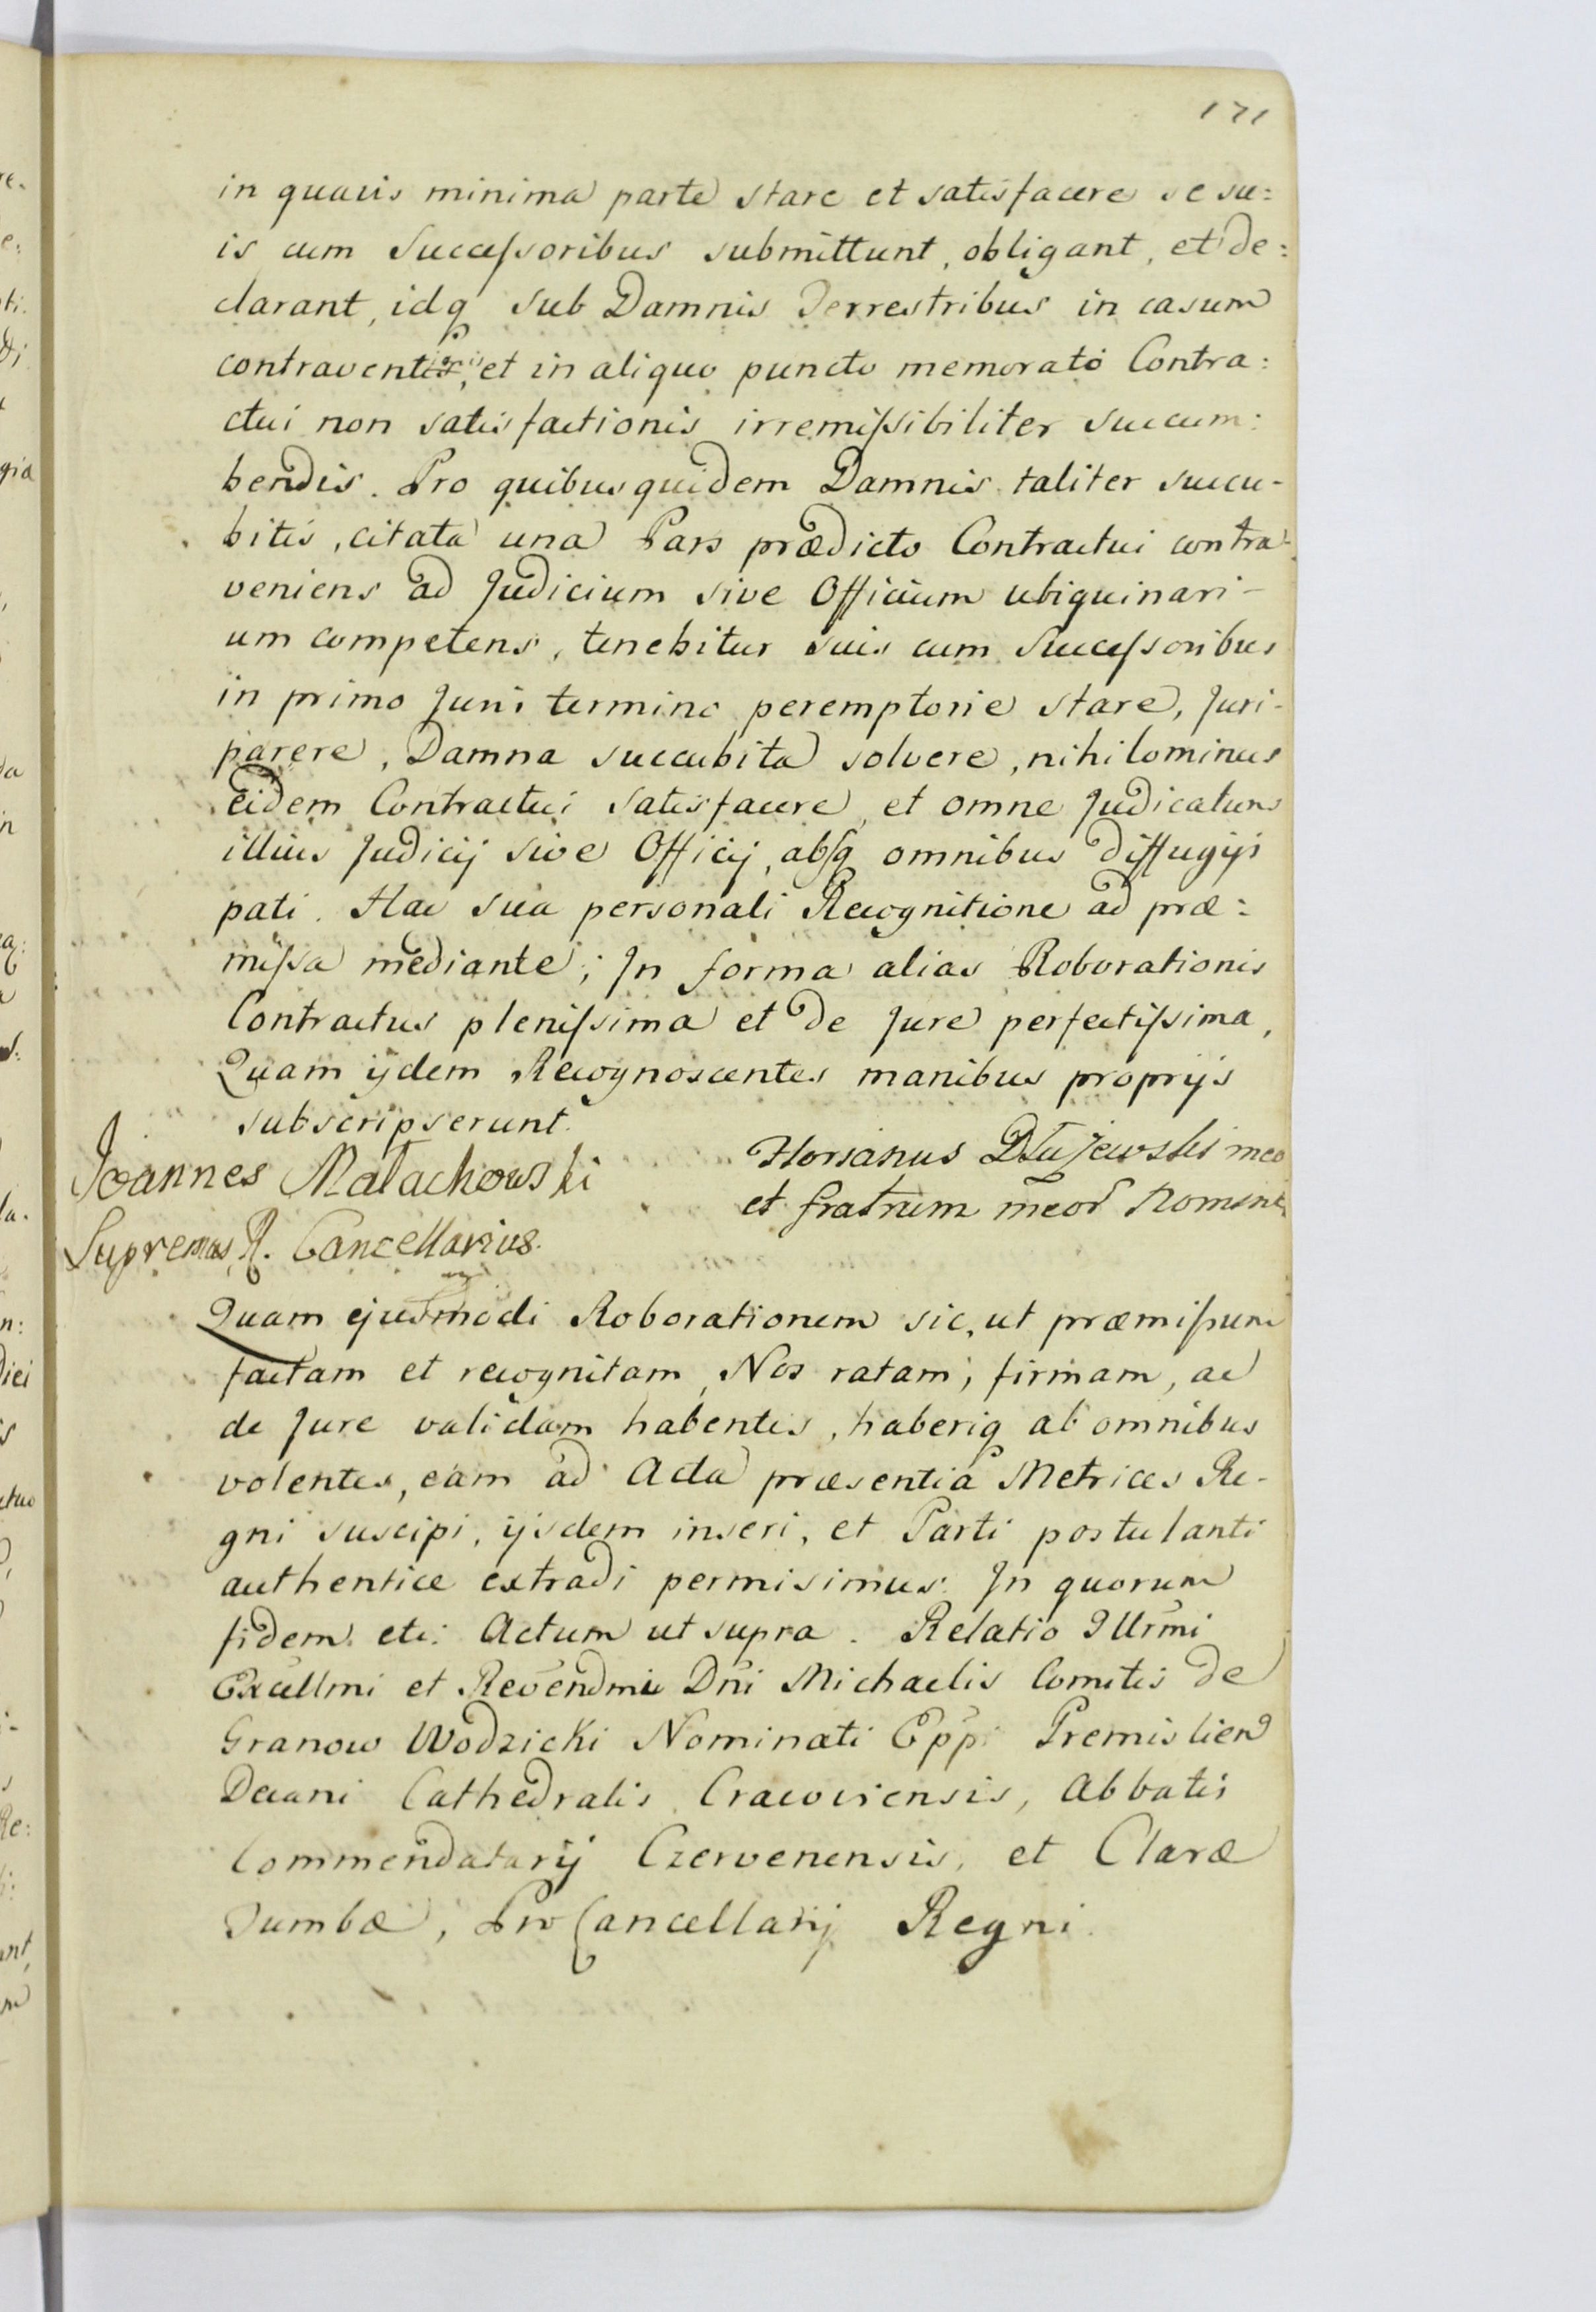 171
in quavis minima parte stare et satisfacere se su:
is cum Successoribus submittunt, obligant, et de:
clarant, idq sub Damnis Terrestribus in casum
contraventionis, et in aliquo puncto memorato Contra:
ctui non satisfactionis irremissibiliter succum:
bendis. Pro quibus quidem Damnis taliter succu-
bitis, citata una Pars prædicto Contractui contra-
veniens ad Judicium sive Officium ubiquinari-
um competens, tenebitur suis cum Successoribus
in primo Juris termino peremptorie stare, Juri-
parere, Damna succubita solvere, nihilominus
Eidem Contractui satisfacere, et omne Judicatum
illius Judicij sive Officij, absq omnibus diffugijs
pati. Hac sua personali Recognitione ad præ:
missa mediante; In forma alias Roborationis
Contractus plenissima et de Jure perfectissima,
Quam ijdem Recognoscentes manibus proprijs
subscripserunt.
Joannes Małachowski
Supremus R. Cancellarius.
Florianus Dłużewski meo
et fratrum meor Nomine
Quam ejusmodi Roborationem sic, ut præmissum
factam et recognitam, Nos ratam, firmam, ac
de Jure validam habentes, haberiq ab omnibus
volentes, eam ad Acta præsentia Metrices Re-
gni suscipi, ijsdem inseri, et Parti postulanti
authentice extradi permisimus. In quorum
fidem etc: Actum ut supra. Relatio Illrmi
Excellmi et Revendmi Dni Michaelis Comitis de
Granow Wodzicki Nominati Eppi Premislien
Decani Cathedralis Cracoviensis, Abbatis
Commendatarij Czervenensis, et Claræ
Tumbæ, Pro Cancellarij Regni.